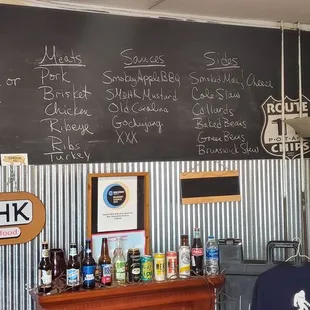 or
Meats
Pork
Brisket
Chicken
Ribeye
Ribs
Turkey
Sauces
Smokey Apple BBQ
SMoHK Mustard
Old Carolina
Gochujang
XXX
Sides
Smoked Mac & Cheese
Cole Slaw
Collards
Baked Beans
Green Beans
Brunswick Stew
ROUTE
CHIPS
HK